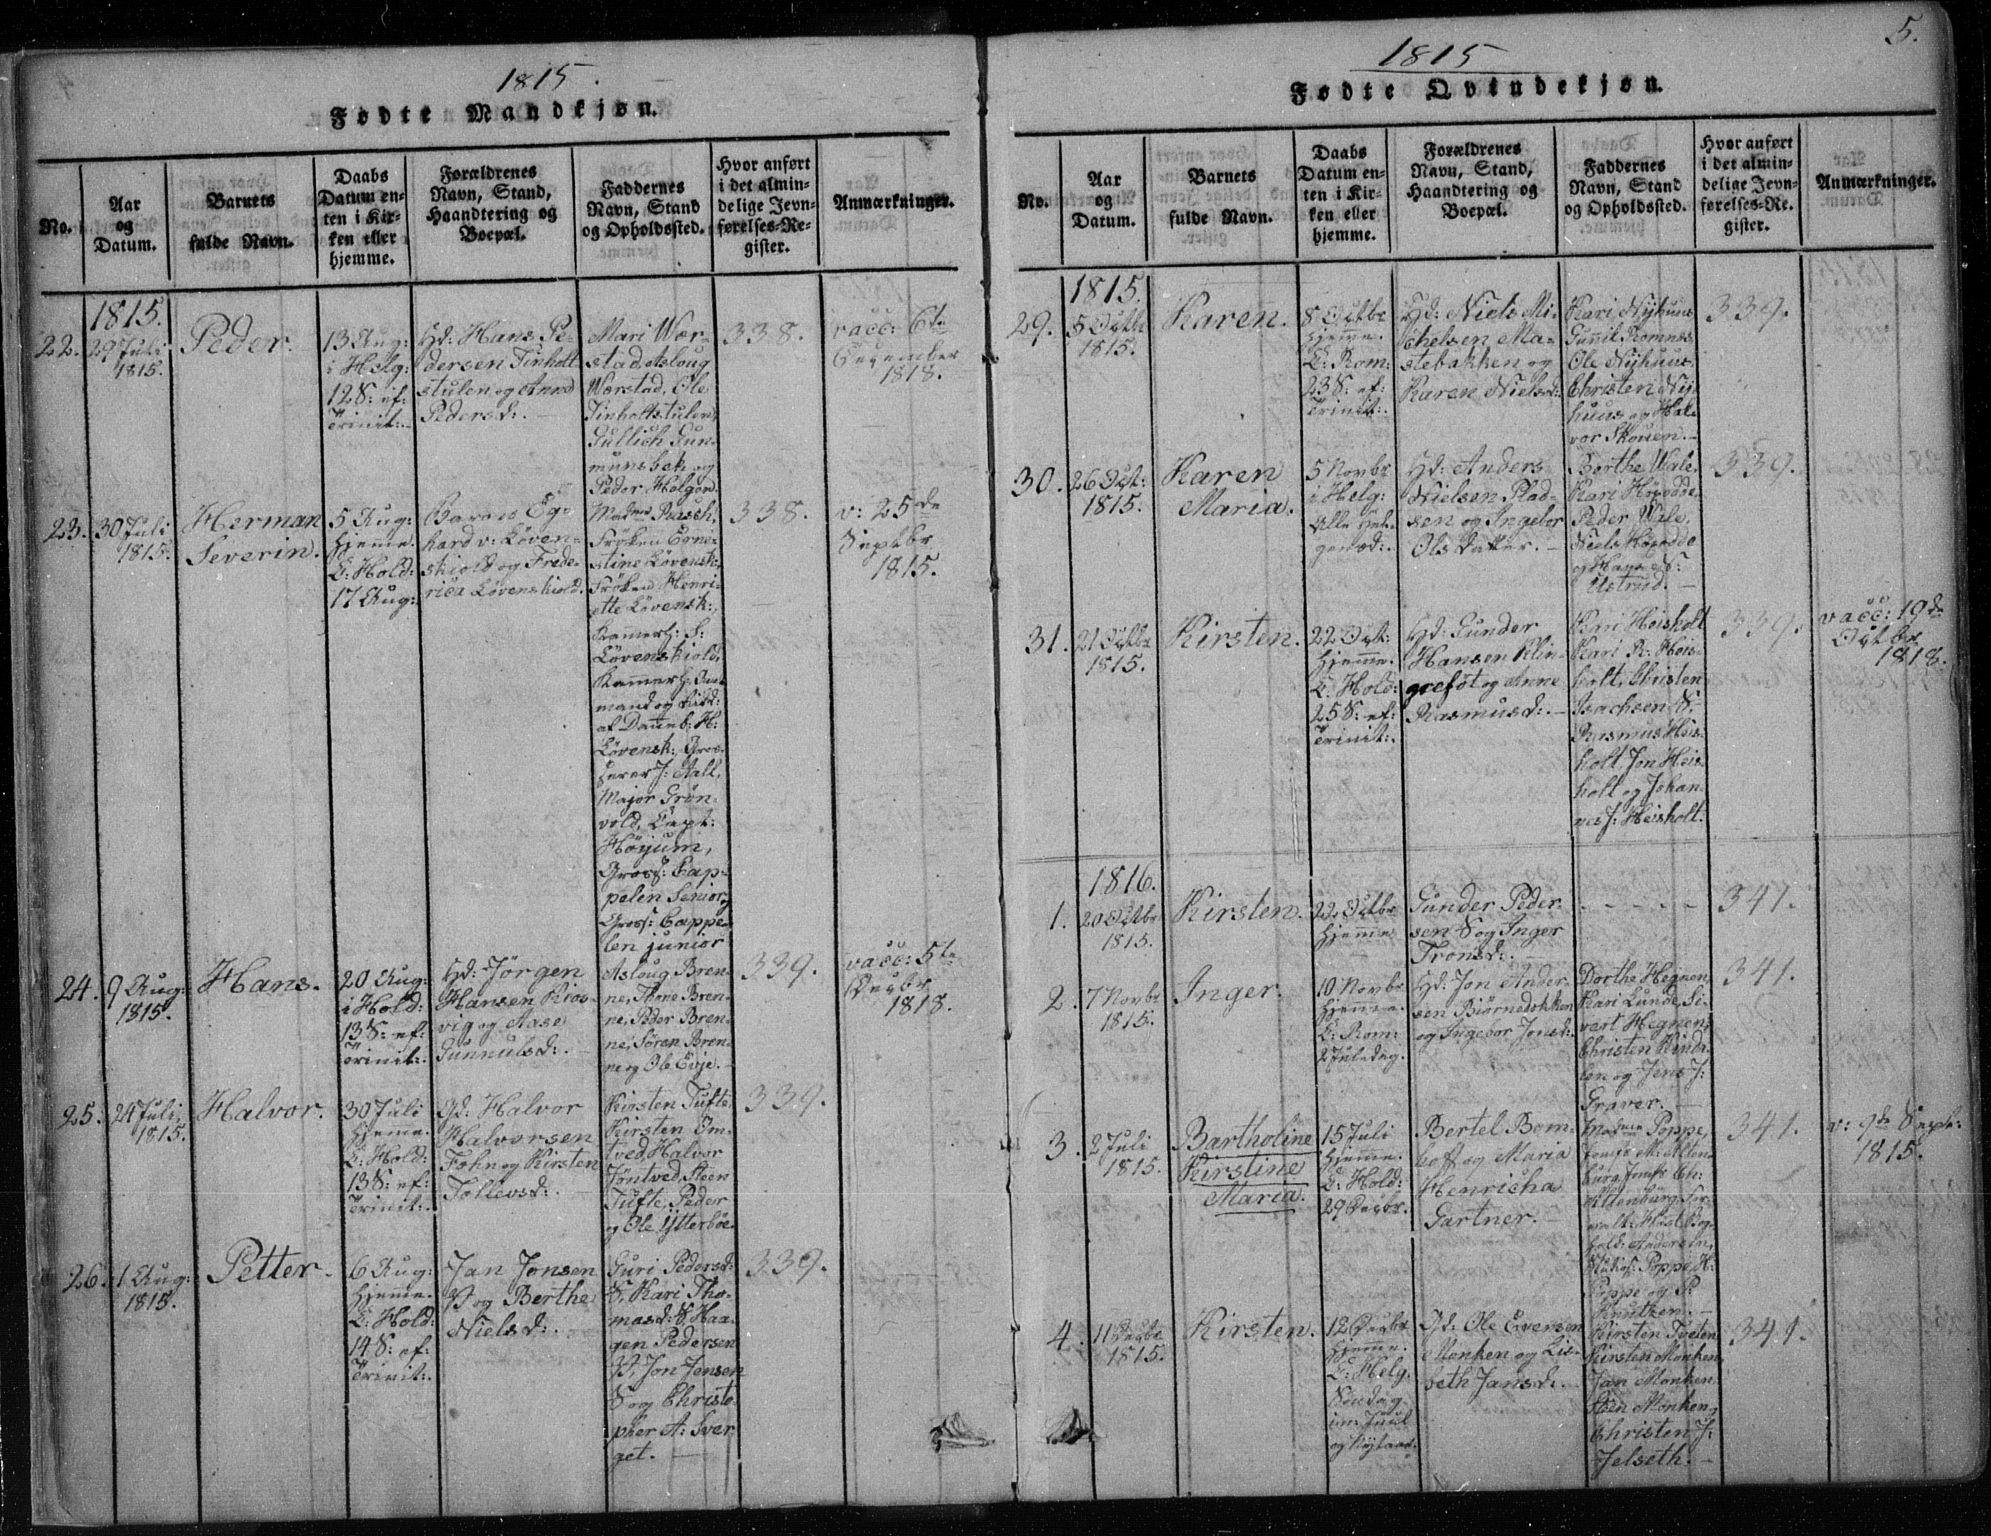 1815.
Fødte Mandkjøn.
No.
Aar
og
Datum.
Barnets
fulde Navn.
Daabs
Datum en-
ten i Kir-
ken eller
hjemme.
Forældrenes
Navn, Stand,
Haandtering og
Boepæl.
Faddernes
Navn, Stand
og Opholdssted.
Hvor anført
i det almin-
delige Jevn-
førelses-Re-
gister.
Anmærkninger.
1815.
22.
29 Juli
1815.
Peder.
13 Aug:
i Helg:
12 S: ef:
Trinit:.
Hd: Hans Pe-
dersen Tinholt-
stulen og Anne
Pedersd:.
Mari Wær-
stad, Asloug
Wærstad, Ole
Tinholtstulen,
Gullich Gun-
munsbek og
Peder Holgord.
338.
vacc: 6te
December
1818.
23.
30 Juli
1815.
Herman
Severin.
5 Aug:
hjemme
C: Hold:
17 Aug:
Baron Eg-
hard v: Løven-
skiold og Frede-
rica Løvenskiold.
Madme Rasch,
Frøken Erne-
stine Løvensk:,
Frøken Henri-
ette Løvensk:,
Kammerh: S:
Løvenskiold,
Kammerh:
mand og Ridd:
af Danneb: H:
Løvensk:, Gros-
serer J: Aall,
Major Grøn-
vold, Capt:
Høyum,
Gross: Cap-
pelen Senior,
Gross: Cappe-
len junior
338.
v: 25de
Septbr
1815.
24.
9 Aug:
1815.
Hans.
20 Aug:
i Hold:
13 S: ef:
Trinit:.
Hd: Jørgen
Hansen Kros-
vig og Aase
Gunnulsd:.
Asloug Bren-
ne, Anne Bren-
ne, Peder Bren-
ne, Søren Bren-
ne og Ole Evje.
339.
vacc: 5te
Decbr
1818.
25.
24 Juli
1815.
Halvor.
30 Juli
hjemme.
C: Hold:
13 S: ef:
Trinit:.
Gd: Halvor
Halvorsen
Fohn og Kirsten
Tollevsd:.
Kirsten Tufte,
Kirsten Om-
tved, Halvor
Jøntved, Steen
Tufte, Peder
og Ole Ytterbøe.
339.
26.
1 Aug:
1815.
Petter.
6 Aug:
hjemme.
C: Hold:
14 S: ef:
Trinit:.
Jan Jonsen
P og Berthe
Nielsd:.
Guri Pedersd:
S, Kari Tho-
masd: S, Haa-
gen Pedersen
P, Jon Jensen
S og Christo-
pher A: Sver-
get.
339.
5.
1815
Fødte Qvindekjøn.
No.
Aar
og
Datum.
Barnets
fulde Navn.
Daabs
Datum en-
ten i Kir-
ken eller
hjemme.
Forældrenes
Navn, Stand,
Haandtering og
Boepæl.
Faddernes
Navn, Stand
og Opholdssted.
Hvor anført
i det almin-
delige Jevn-
førelses-Re-
gister.
Anmærkninger.
1815.
29.
5 Octbr
1815.
Karen.
8 Octbr
hjemme.
C: Rom:
23 S: ef:
Trinit:.
Hd: Niels Mi-
chelsen Ma-
stebakken og
Karen Nielsd:
Kari Nyhuus,
Gunnil Romnæs,
Ole Nyhuus,
Christen Ny-
huus og Hal-
vor Skouen.
339.
30.
26 Oct:
1815.
Karen
Maria.
5 Novbr
i Helg:
Alle Hel-
gensd:.
Hd: Anders
Nielsen Plad-
sen og Ingebor
Olsdatter.
Berthe Wale,
Kari Høyodde,
Peder Wale,
Niels Høyodde
og Hans N:
Ustrud.
339.
31.
21 Octbr
1815.
Kirsten.
22 Oct:
hjemme.
C: Hold:
25 S: ef:
Trinit:.
Hd: Gunder
Hansen Klin-
grefot og Anne
Rasmusd:.
Kari Heisholt
Kari R: Heis-
holt, Christen
Isachsen S.
Rasmus Heis-
holt, Jon Heis-
holt og Johan-
nes J: Heisholt.
339.
vacc: 19de
Octbr
1818.
1816.
1.
20 Octbr
1815.
Kirsten.
22 Octbr
hjemme
Gunder Peder-
sen S og Inger
Tronsd:.
- - - - -
341.
2.
7 Novbr
1815.
Inger.
10 Novbr
hjemme.
C: Rom:
2 Juledag.
Hd: Jon Ander-
sen Biørnedokken
og Ingebor Jonsd:.
Dorthe Hegnen,
Kari Lunde, Si-
vert Hegnen,
Christen Hinda-
len og Jens J:
Graver.
341.
3.
2 Juli
1815.
Bartholine
Kirstine
Maria.
15 Juli
hjemme.
C: Hold:
29 Decbr.
Bertel Bom-
hoff og Maria
Henricha
Gartner.
Madme Poppe,
Jomfr M: Alten-
burg, Jomfr Ch:
Altenburg,
Poppe, H:
Poppe og P:
Knutzen.
341.
v: 9de Septb:
1815.
4.
11 Decbr
1815.
Kirsten.
12 Decbr
hjemme.
C: Helg.
Søndag
im: Juul
og Nytaar.
Gd: Ole Evensen
Monken og Lis-
beth Jansd:.
Kirsten Tveten,
Kirsten Monken,
Jan Monken,
Sten Monken,
Christen J:
Jelseth.
341.